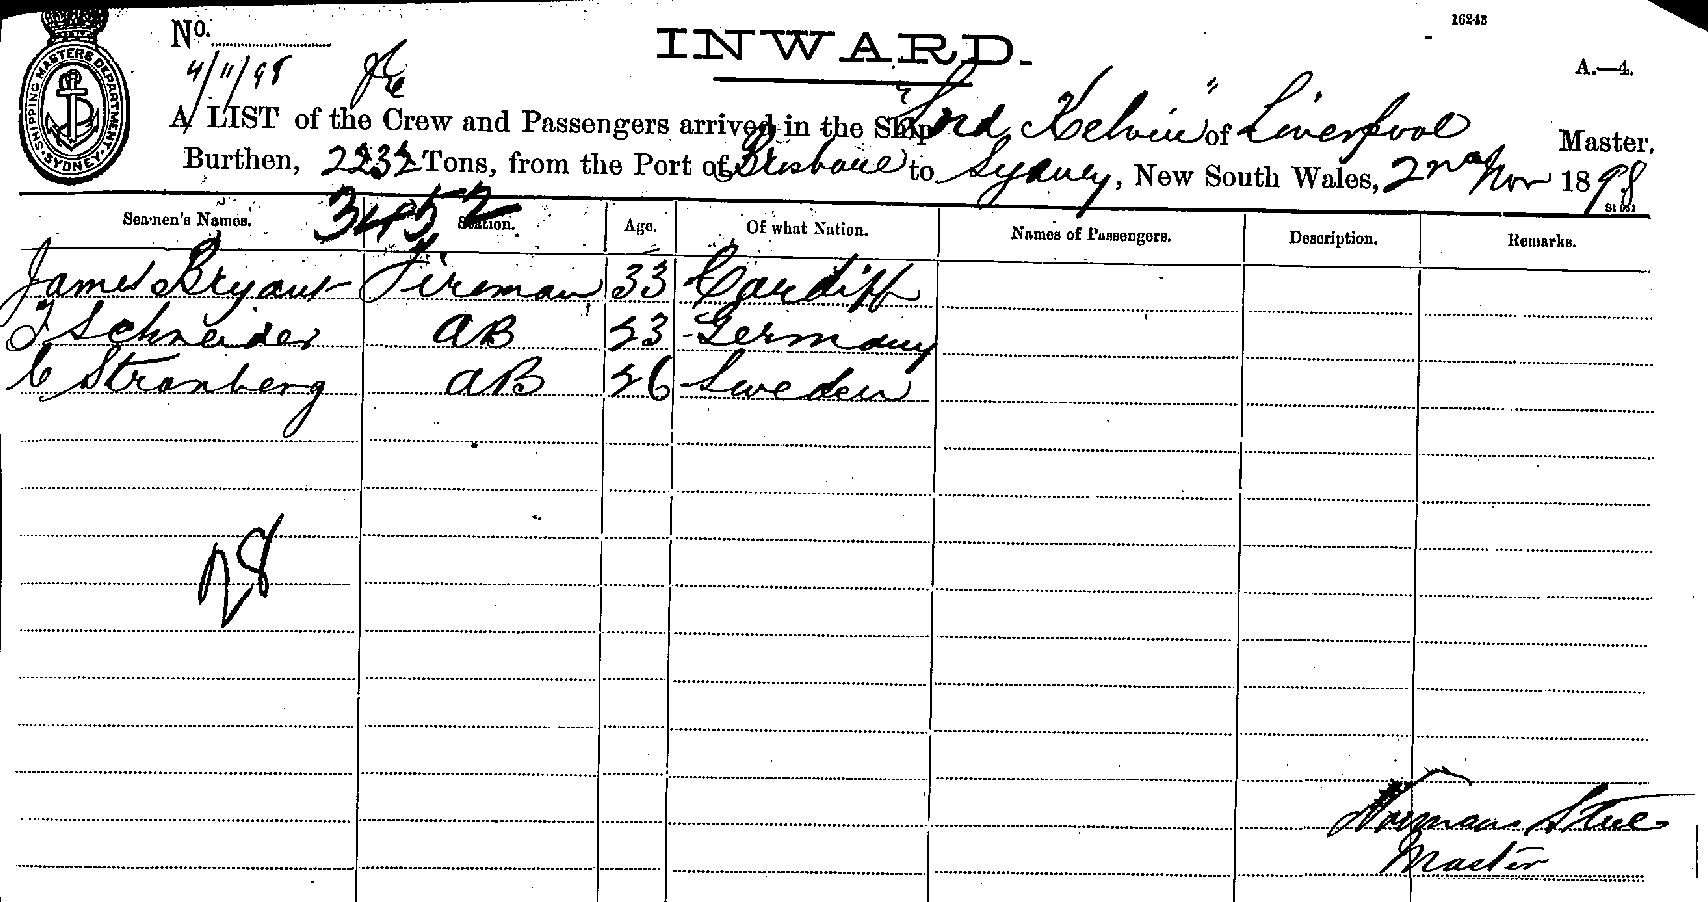 16243
No.
INWARD.
4/11/98
A.—4.
SHIPPING MASTERS DEPARTMENT. SYDNEY.
A LIST of the Crew and Passengers arrived in the Ship "Lord Kelvin" of Liverpool Master,
Burthen, 2232 Tons, from the Port of Brisbane to Sydney, New South Wales, 2nd Nov 1898
3452
Seamen's Names. Station. Age. Of what Nation. Names of Passengers. Description. Remarks.
James Bryant Fireman 33 Cardiff
F Schneider AB 23 Germany
C Stranberg AB 26 Sweden
28
Norman Steel
Master